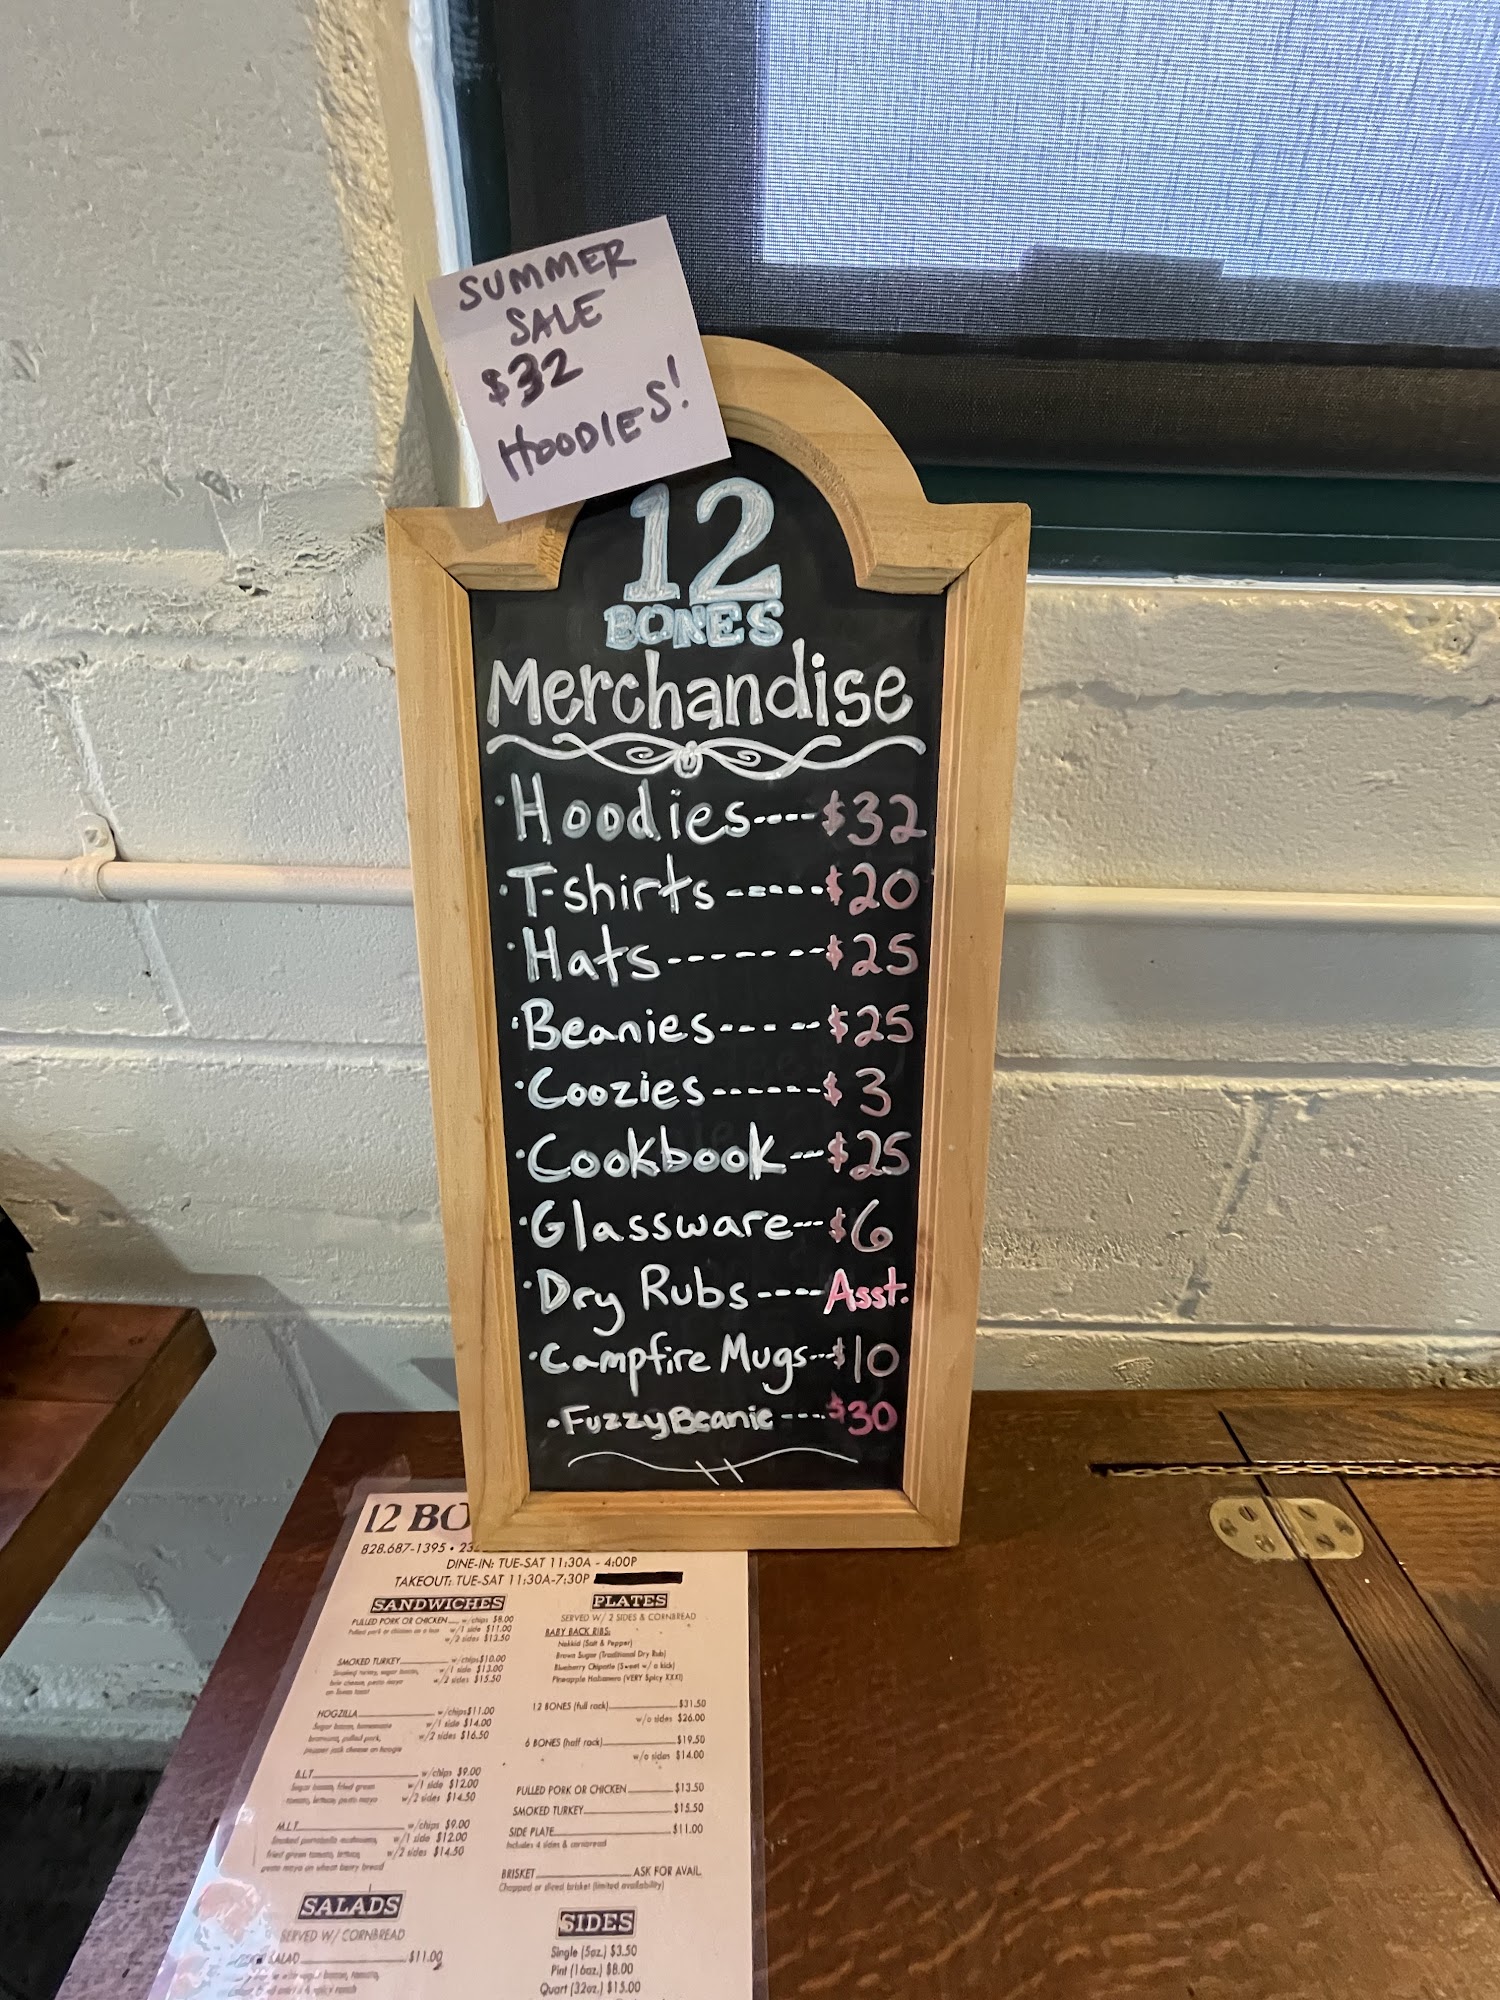 SUMMER
SALE
$32
HOODIES!
12
BONES
Merchandise
·Hoodies----$32
·T-shirts------$20
·Hats-------$25
·Beanies-----$25
·Coozies------$3
·Cookbook--$25
·Glassware---$6
·Dry Rubs----Asst.
·Campfire Mugs---$10
·Fuzzy Beanie---$30
12 BO
828.687-1395 • 23
DINE-IN: TUE-SAT 11:30A - 4:00P
TAKEOUT: TUE-SAT 11:30A-7:30P
SANDWICHES
PULLED PORK OR CHICKEN w/chips $8.00
Pulled pork or chicken on a bun w/1 side $11.00
w/2 sides $13.50
SMOKED TURKEY w/chips $10.00
Smoked turkey, sugar bacon, w/1 side $13.00
brie cheese, pesto mayo w/2 sides $15.50
on Texas toast
HOGZILLA w/chips $11.00
Sugar bacon, homemade w/1 side $14.00
bratwurst, pulled pork, w/2 sides $16.50
pepper jack cheese on hoagie
B.L.T. w/chips $9.00
Sugar bacon, fried green w/1 side $12.00
tomato, lettuce, pesto mayo w/2 sides $14.50
M.L.T. w/chips $9.00
Smoked portobello mushrooms, w/1 side $12.00
fried green tomato, lettuce, w/2 sides $14.50
pesto mayo on wheat berry bread
SALADS
SERVED W/ CORNBREAD
SALAD $11.00
PLATES
SERVED W/ 2 SIDES & CORNBREAD
BABY BACK RIBS:
Nekkid (Salt & Pepper)
Brown Sugar (Traditional Dry Rub)
Blueberry Chipotle (Sweet w/ a kick)
Pineapple Habanero (VERY Spicy XXX!)
12 BONES (full rack) $31.50
w/o sides $26.00
6 BONES (half rack) $19.50
w/o sides $14.00
PULLED PORK OR CHICKEN $13.50
SMOKED TURKEY $15.50
SIDE PLATE $11.00
Includes 4 sides & cornbread
BRISKET ASK FOR AVAIL.
Chopped or sliced brisket (limited availability)
SIDES
Single (5oz.) $3.50
Pint (16oz.) $8.00
Quart (32oz.) $15.00